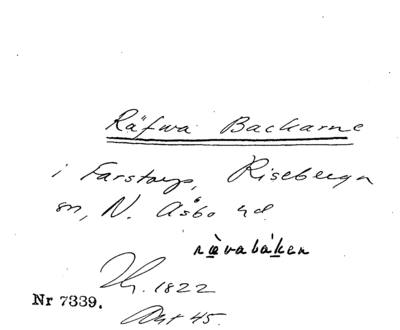 Räfwa Backarne
i Farstorp, Riseberga
sn, N. Åsbo hd.
rävabáken
1822
Nr 7339.
Akt 45.